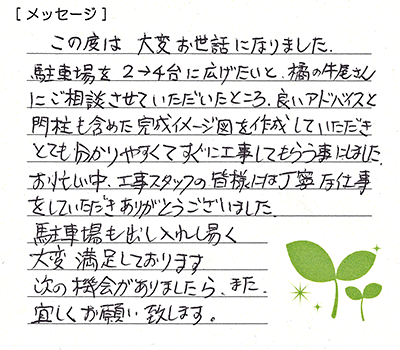 [メッセージ]
この度は 大変お世話になりました.
駐車場を 2→4台に広げたいと、橘の牛尾さん
にご相談させていただいたところ、良いアドバイスと
門柱も含めた完成イメージ図を作成していただき
とても分かりやすくてすぐに工事してもらう事にしました.
お忙しい中、工事スタッフの皆様には丁寧な仕事
をしていただきありがとうございました.
駐車場も出し入れし易く
大変満足しております
次の機会がありましたら、また、
宜しくお願い致します。